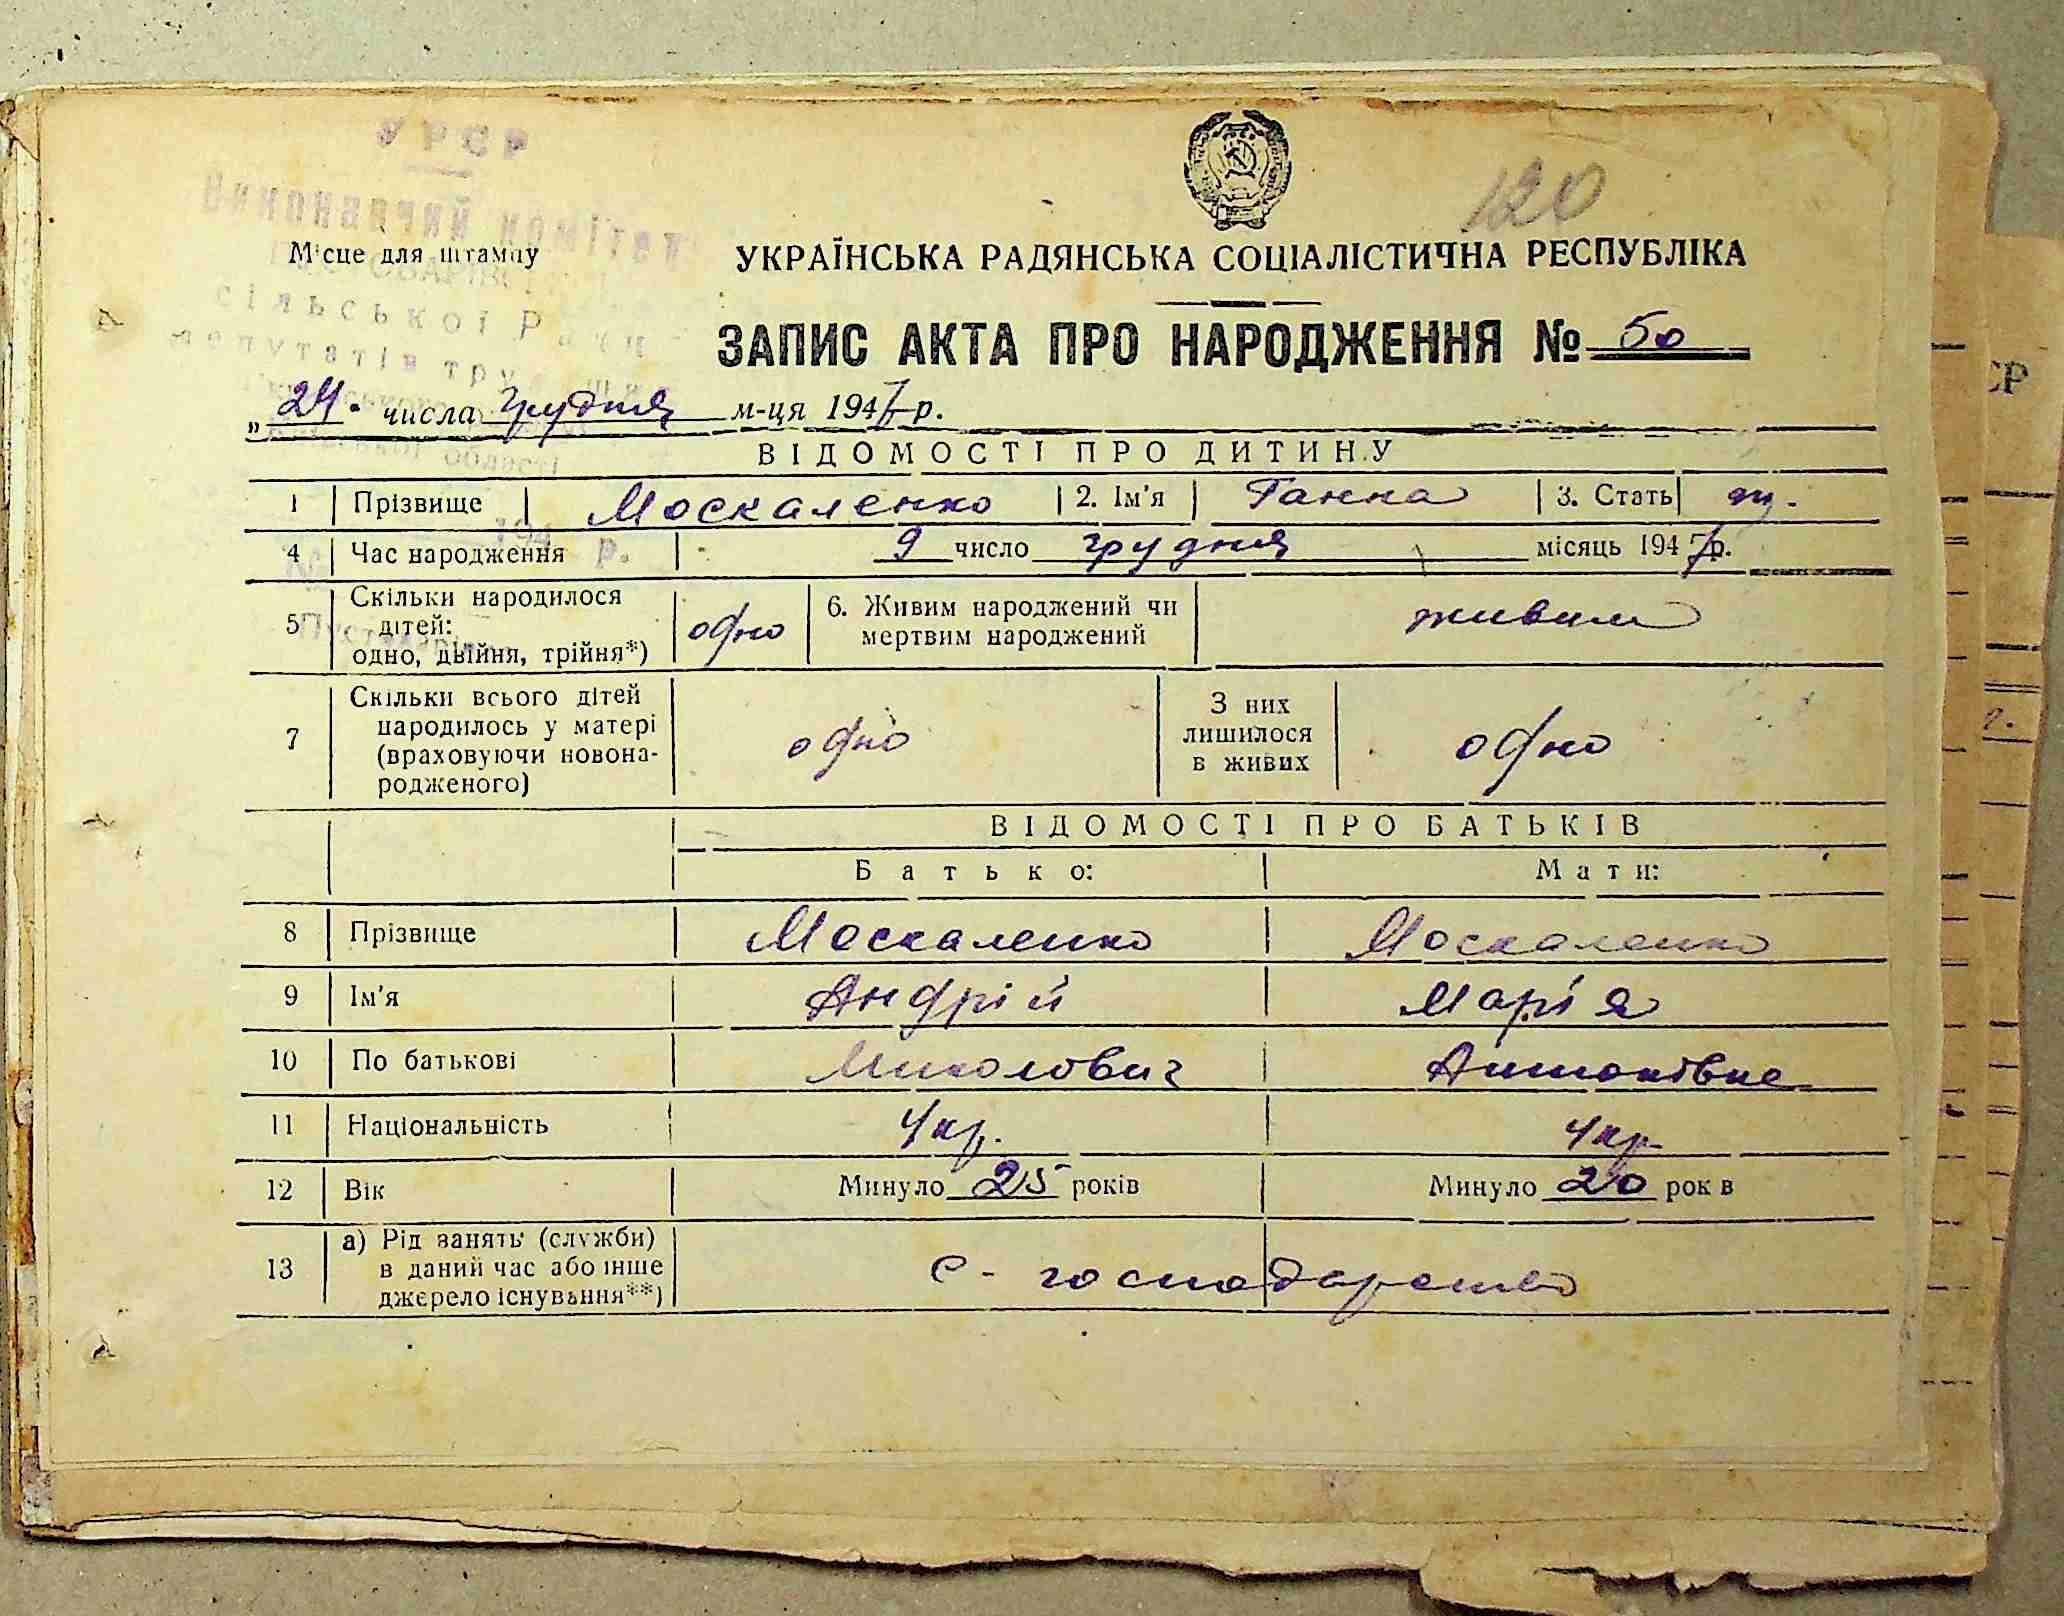 УРСР
Виконавчий комітет
сільської Ради
депутатів
області
194 р.
120
Місце для штампу
УКРАЇНСЬКА РАДЯНСЬКА СОЦІАЛІСТИЧНА РЕСПУБЛІКА
ЗАПИС АКТА ПРО НАРОДЖЕННЯ № 50
„24" числа грудня м-ця 1947 р.
ВІДОМОСТІ ПРО ДИТИНУ
1 Прізвище Москаленко 2. Ім'я Ганна 3. Стать ж.
4 Час народження 9 число грудня місяць 1947 р.
5 Скільки народилося дітей: одно, двійня, трійня*) одно 6. Живим народжений чи мертвим народжений живим
7 Скільки всього дітей народилось у матері (враховуючи новонародженого) одно З них лишилося в живих одно
ВІДОМОСТІ ПРО БАТЬКІВ
Батько: Мати:
8 Прізвище Москаленко Москаленко
9 Ім'я Андрій Марія
10 По батькові Миколович Антонівна
11 Національність Укр. Укр
12 Вік Минуло 25 років Минуло 20 рок в
13 а) Рід занять (служби) в даний час або інше джерело існування**) с-господарство
СР